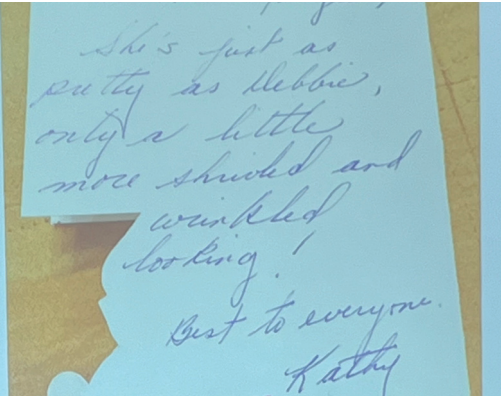 She's just as
pretty as Debbie,
only a little
more shrivled and
wrinkled
looking!
Best to everyone.
Kathy